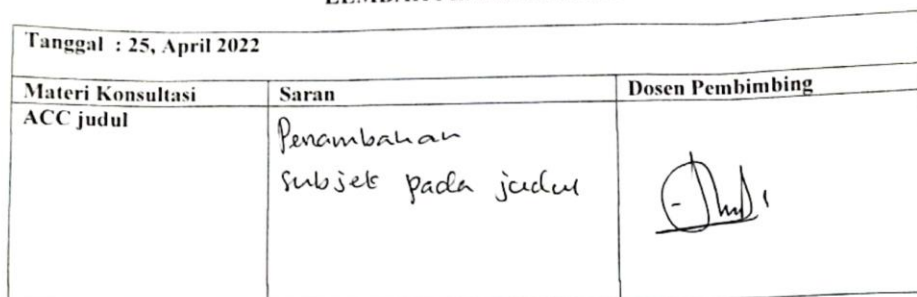 Tanggal : 25, April 2022
Materi Konsultasi Saran Dosen Pembimbing
ACC judul
Penambahan
subjek pada judul